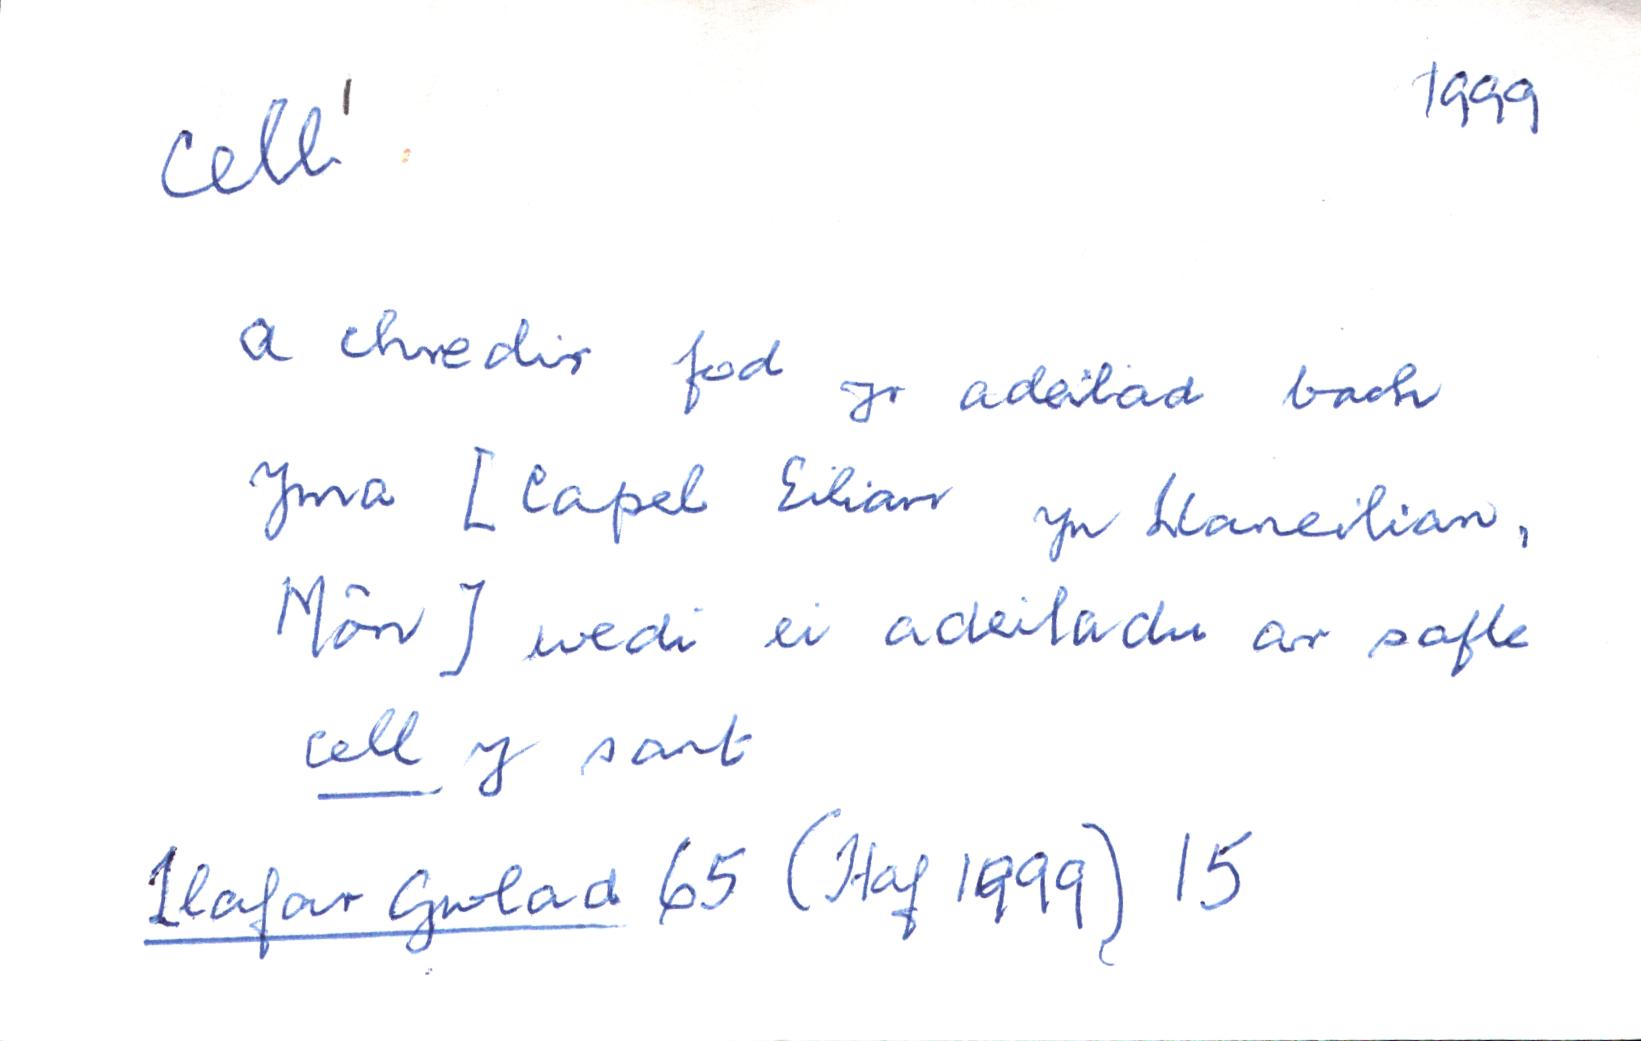 cell¹
1999
a chredir fod yr adeilad bach
yma [Capel Eilian yn Llaneilian,
Môn] wedi ei adeiladu ar safle
cell y sant
Llafar Gwlad 65 (Haf 1999) 15